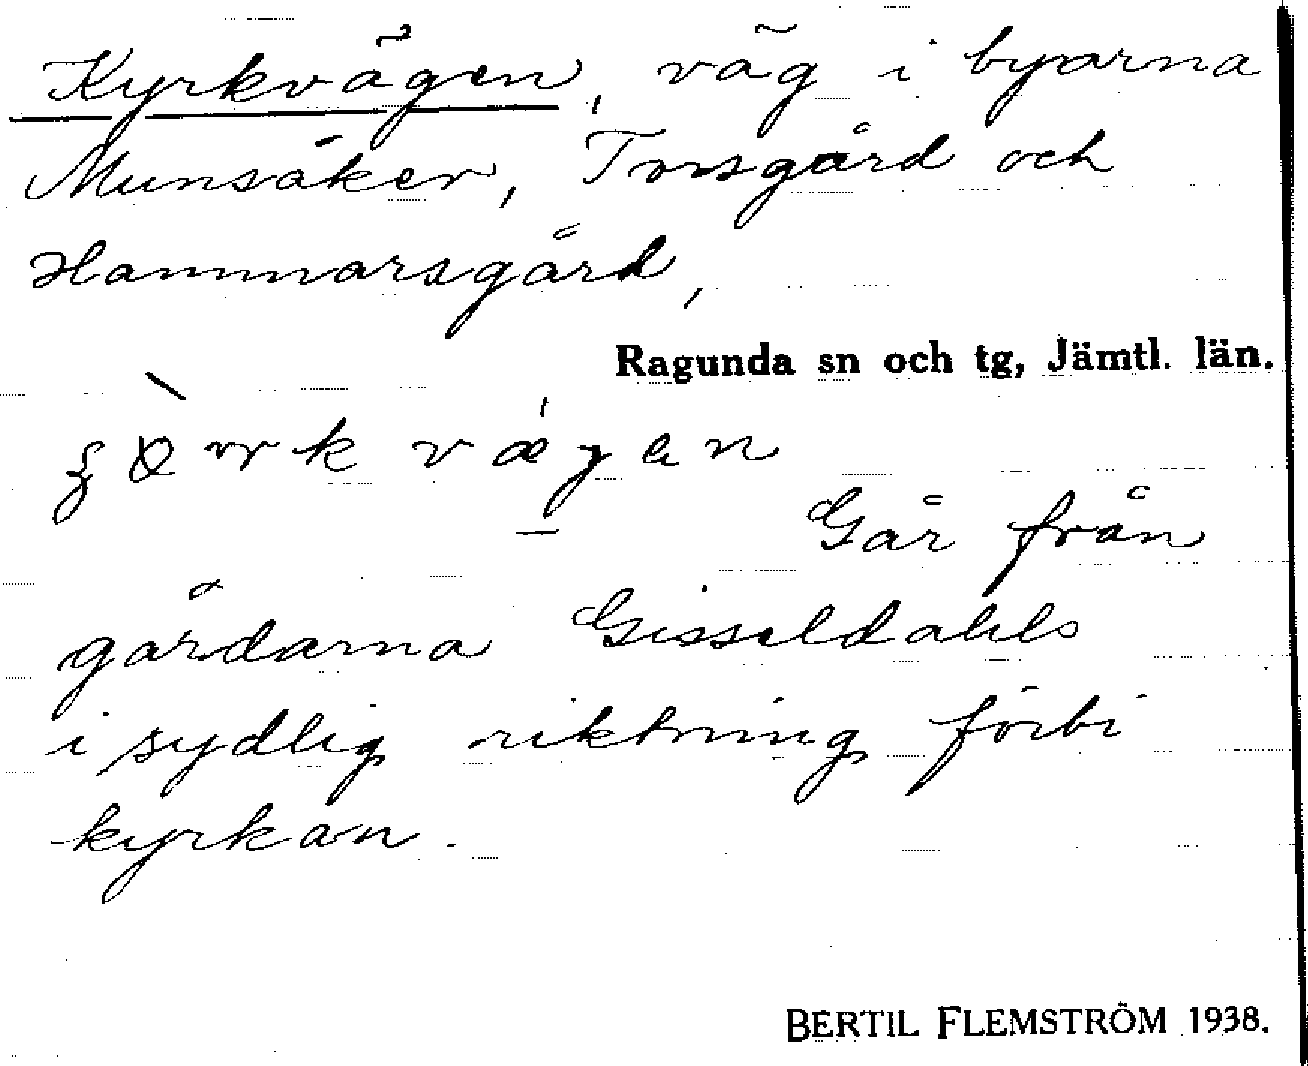 Kyrkvägen, väg i byarna
Munsåker, Torsgård och
Hammarsgård,
Ragunda sn och tg, Jämtl. län.
Går från
gårdarna Gisseldahls
i sydlig riktning förbi
kyrkan.
BERTIL FLEMSTRÖM 1938.